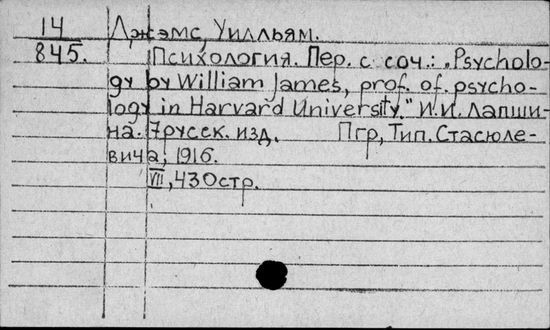 14 Джэмс, Уилльям.
845. Психология. Пер. с соч.: „Psycholo-
gy by William James, prof. of. psycho-
logy in Harvard University." И.И. Лапши-
на. 7русск. изд. Пгр, Тип. Стасюле-
вича, 1916.
VII, 430стр.